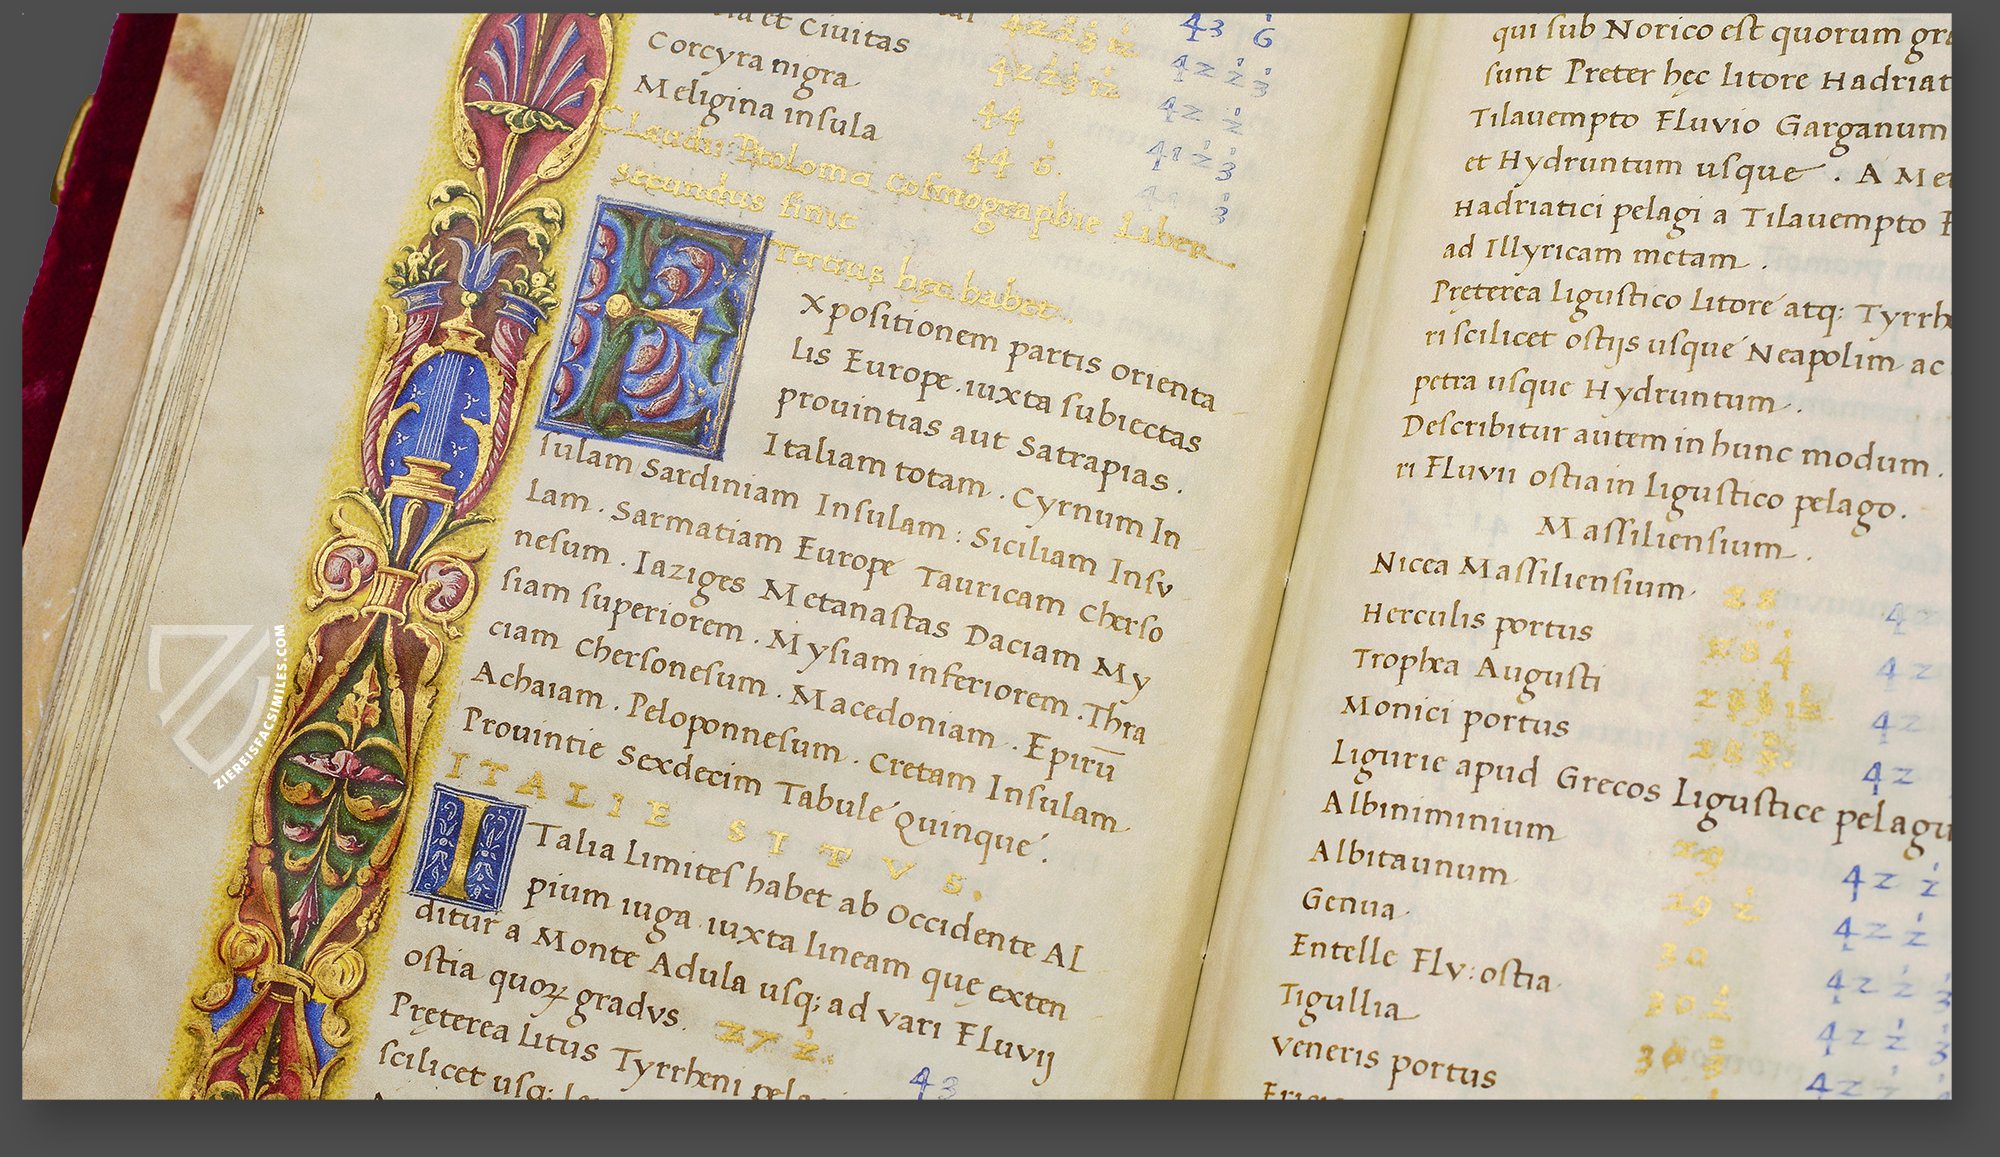 et Ciuitas 43 6
Corcyra nigra
Meligina insula 44
44 6.
Claudii Ptolomei Cosmographie Liber
secundus finit
Tertius hec habet.
EXpositionem partis orienta
lis Europe .iuxta subiectas
prouintias aut Satrapias.
Italiam totam. Cyrnum In
sulam Sardiniam Insulam: Siciliam Insu
lam. Sarmatiam Europe Tauricam Cherso
nesum. Iaziges Metanastas Daciam My
siam superiorem. Mysiam inferiorem. Thra
ciam Chersonesum. Macedoniam. Epirū
Achaiam. Peloponnesum. Cretam Insulam
Prouintie Sexdecim Tabule Quinque.
ITALIE SITVS.
ITalia limites habet ab Occidente Al
pium iuga iuxta lineam que exten
ditur a Monte Adula usq; ad vari Fluvij
ostia quoꝝ gradvs. 27 43
Preterea Litus Tyrrheni
scilicet usq;
qui sub Norico est quorum
sunt Preter hec litore Hadriat
Tilauempto Fluvio Garganum
et Hydruntum usque. A
Hadriatici pelagi a Tilauempto
ad Illyricam metam.
Preterea ligustico Litore atq; Tyrrh
ri scilicet ostijs usque Neapolim ac
petra usque Hydruntum.
Describitur autem in hunc modum.
ri Fluvii ostia in ligustico pelago.
Massiliensium.
Nicea Massiliensium 28 42
Herculis portus 42
Trophea Augusti 42
Monici portus 42
Ligurie apud Grecos Ligustice pelagu
Albiniminium 29 42
Albitaunum 29 42
Genua 30 42
Entelle Flv: ostia 42
Tigullia 42
Veneris portus 30
ZIEREISFACSIMILES.COM